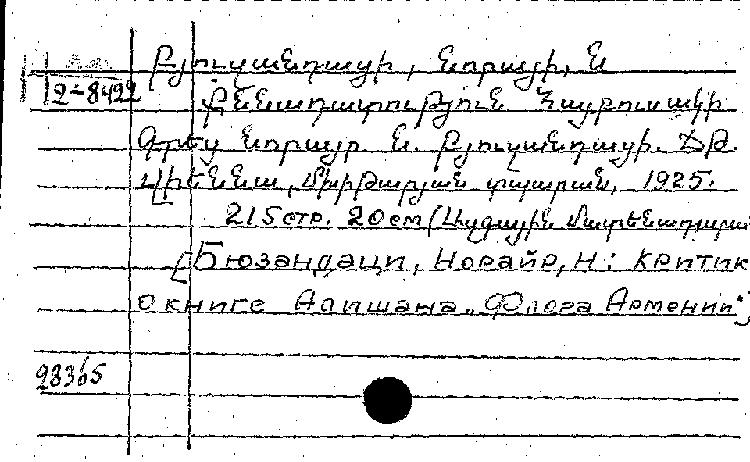 Բյուզանդացի, Նորայր, Ն
2-8422
Քննադատություն Հայբուսակի
Գրեց Նորայր Ն. Բյուզանդացի.
Վիեննա, Մխիթարյան տպարան, 1925.
215 стр. 20 см (Ազգային մատենադարան
[Бюзандаци, Норайр, Н: Критик
о книге Алишана „Флора Армении"]
98365